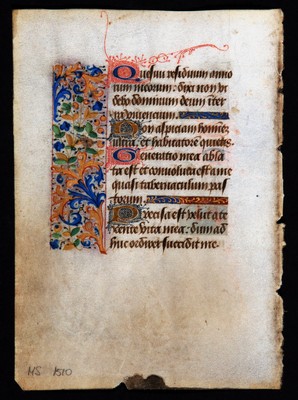 Quesivi residuum anno
rum meorum: dixi non vi
debo dominum deum in ter
ra viventium.
Non aspiciam hominem
ultra: et habitatorem quietis.
Generatio mea abla
ta est et convoluta est a me
quasi tabernaculum pas
torum.
Precisa est velut a te
xente vita mea: dum ad
huc ordirer succidit me.
MS 1510